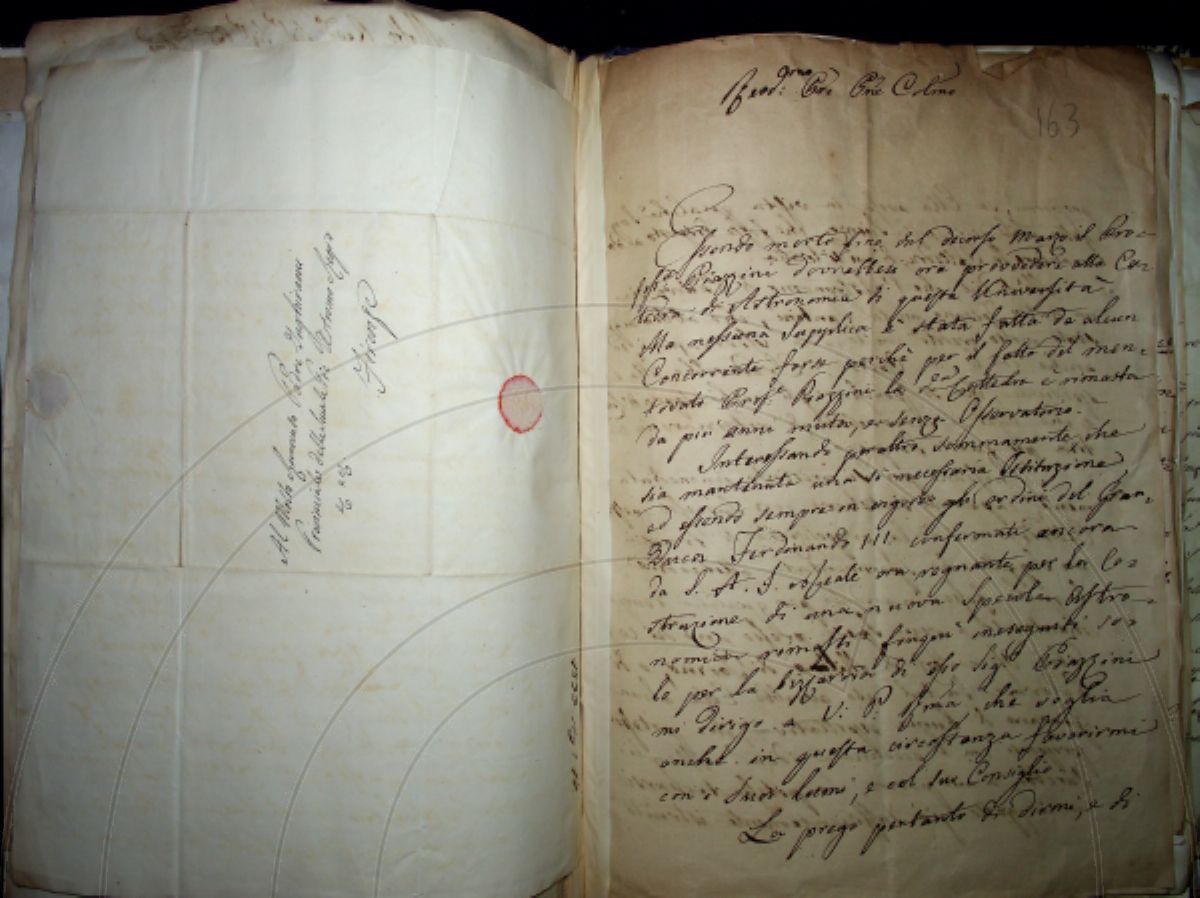 Al Molto Reverendo Padre Inghirami
Provinciale delle Scuole Pie Astronomo
Firenze
Rev.d: gmo Pre Pne Colmo
163
Essendo morto fino dal decorso Marzo il Pro-
fesre Piazzini dovrebbesi ora provvedere alla Ca-
tedra di Astronomia di questa Università
Ma nessuna Supplica è stata fatta da alcun
Concorrente forse perchè per il fatto del men-
tovato Profe Piazzini la da Cattedra è rimasta
da più anni muta, e senza Osservatorio.
Interessando peraltro sommamente che
sia mantenuta una sì necessaria Istituzione
ed essendo sempre in vigore gli ordini del Gran-
Duca Ferdinando III. confermati ancora
da S. A. I. e Reale ora regnante per la Co-
struzione di una nuova Specola Astro-
nomica rimasti finquì ineseguiti so-
lo per la bizzarria di do Sigr Piazzini
mi dirigo a V: P. Rma che voglia
anche in questa circostanza favorirmi
con i Suoi lumi, e col suo Consiglio
La prego pertanto di dirmi, e di